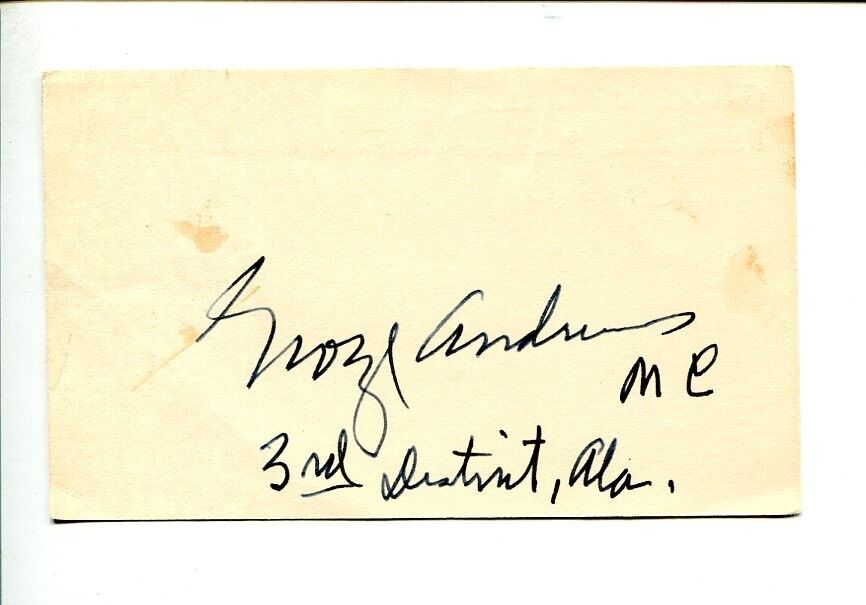 George Andrews
MC
3rd District, Ala.